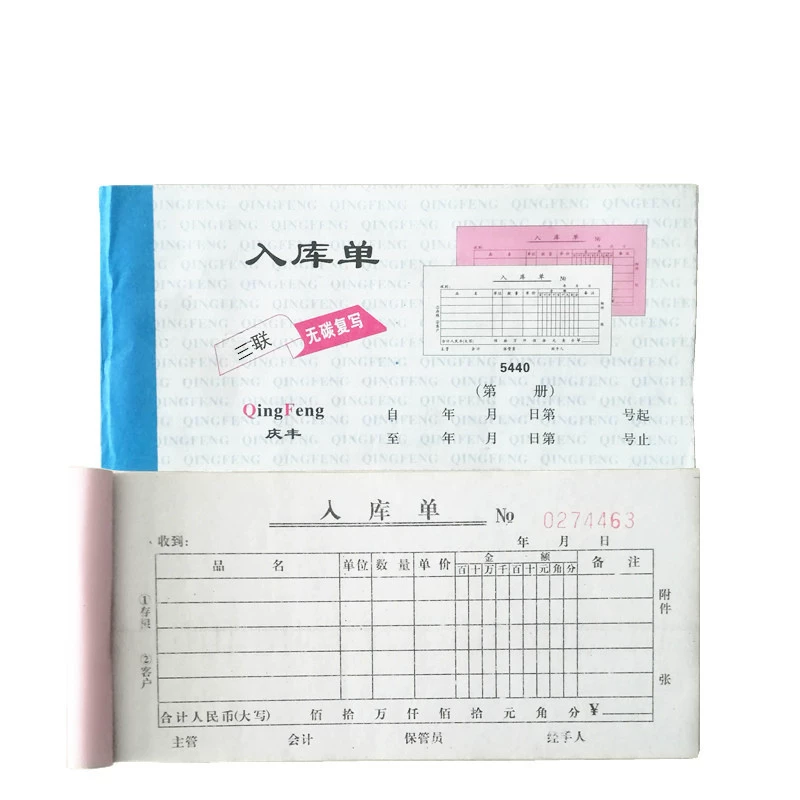 QINGFENG QINGFENG QINGFENG QINGFENG QINGFENG QINGFENG
入库单
三联
无碳复写
入 库 单 №
入 库 单 №
5440
(第 册)
QingFeng
庆丰
自 年 月 日第 号起
至 年 月 日第 号止
入 库 单 № 0274463
收到: 年 月 日
品 名 单位 数 量 单 价 金 额 备 注
百 十 万 千 百 十 元 角 分
①存根
②客户
附件 张
合计人民币(大写) 佰 拾 万 仟 佰 拾 元 角 分 ¥
主管 会计 保管员 经手人